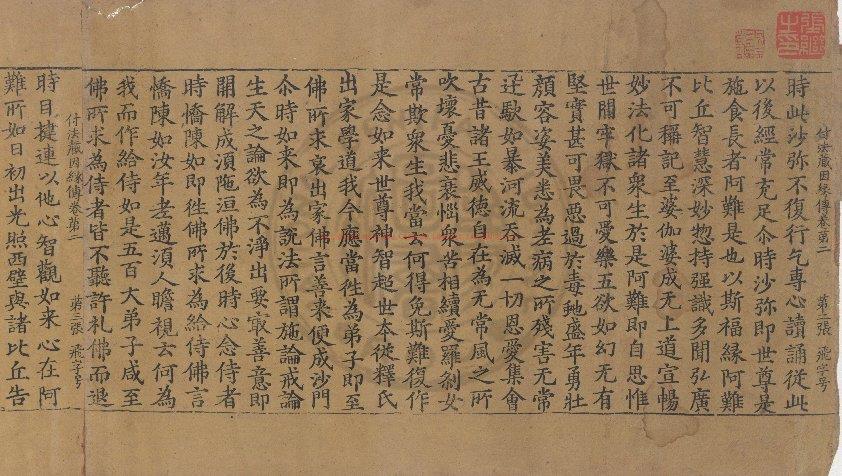 付法藏因緣傳卷第二　第二張　飛字号
時此沙弥不復行乞專心讀誦從此
以後經常充足尒時沙弥即世尊是
施食長者阿難是也以斯福緣阿難
比丘智慧深妙惣持强識多聞弘廣
不可稱記至婆伽婆成无上道宣暢
妙法化諸衆生於是阿難即自思惟
世間牢獄不可愛樂五欲如幻无有
堅實甚可畏惡過於毒虵盛年勇壯
顔容姿美悉為老病之所殘害无常
迅駃如暴河流吞滅一切恩愛集會
古昔諸王威德自在為无常風之所
吹壞憂悲衰惱衆苦相續愛羅刹女
常欺衆生我當云何得免斯難復作
是念如来世尊神智超世本從釋氏
出家學道我今應當徃為弟子即至
佛所求哀出家佛言善来便成沙門
尒時如来即為說法所謂施論戒論
生天之論欲為不淨出要㝡善意即
開解成湏陁洹佛於後時心念侍者
時憍陳如即徃佛所求為給侍佛言
憍陳如汝年老邁湏人瞻視云何為
我而作給侍如是五百大弟子咸至
佛所求為侍者皆不聽許礼佛而退
付法藏因緣傳卷第二　第三張　飛字号
時目揵連以他心智觀如来心在阿
難所如日初出光照西壁與諸比丘告